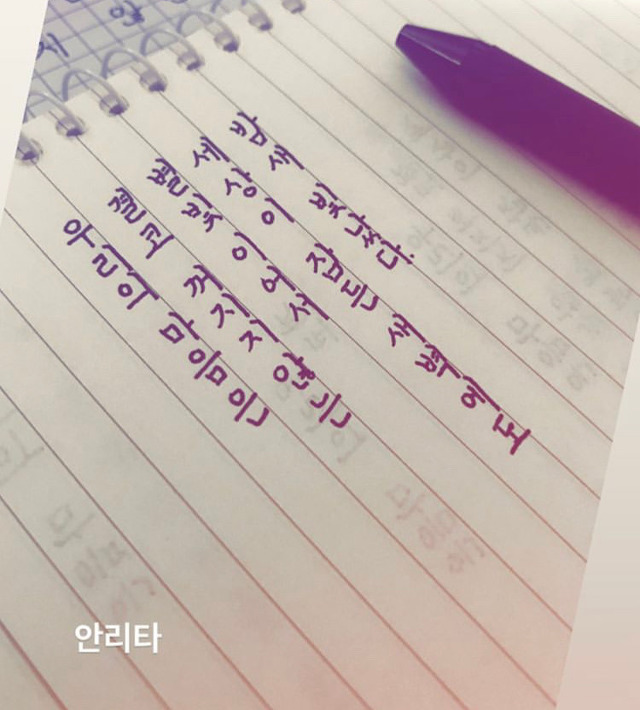 우리의 마음은
결코 꺼지지 않는
별빛이어서
세상이 잠든 새벽에도
밤새 빛났다.
안리타